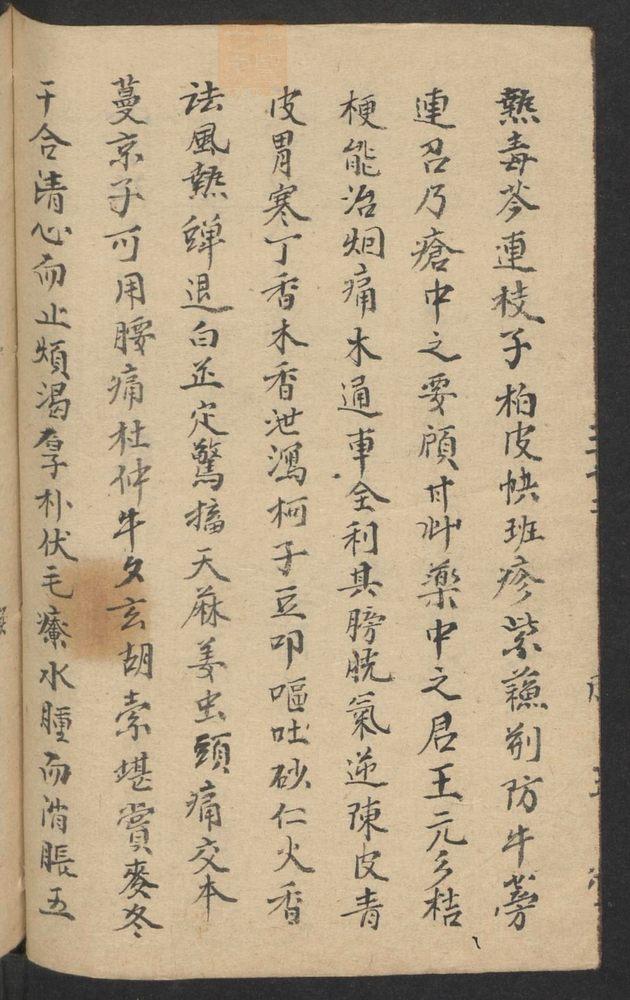 熱毒芩連枝子柏皮快班疹紫蘓荊防牛蒡
連召乃瘡中之要領甘艸藥中之君王元參桔
梗能治烟痛木通車全利其膀胱氣逆陳皮青
皮胃寒丁香木香泄瀉柯子豆叩嘔吐砂仁火香
祛風熱蟬退白芷定驚搐天麻姜虫頭痛交本
蔓京子可用腰痛杜仲牛夕玄胡索堪賞麥冬
干合清心而止煩渴厚朴伏毛療水腫而消脹五